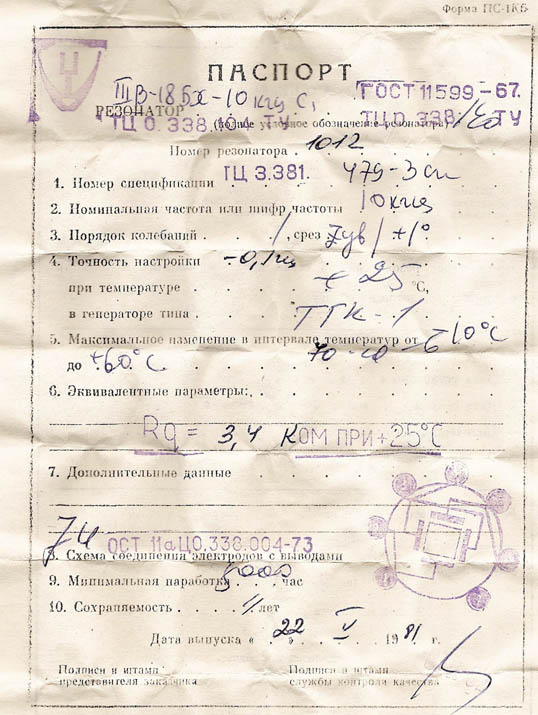 Форма ПС-1КБ
ПАСПОРТ
IIIВ-18 БХ-10 кгц С, ГОСТ 11599-67.
РЕЗОНАТОР ТЦ 0.338.104 ТУ (полное условное обозначение резонатора) ТЦ 0.338. ТУ
Номер резонатора . 1012
1. Номер спецификации ТЦ 3.381. 479-3 сп
2. Номинальная частота или шифр частоты 10 кгц
3. Порядок колебаний . . 1, срез +1°
4. Точность настройки -0,1 гц
при температуре + 25 °С,
в генераторе типа . ТГК-1
5. Максимальное изменение в интервале температур от -10°С
до +60°С.
6. Эквивалентные параметры: .
Rq = 3,4 КОМ ПРИ +25°С
7. Дополнительные данные
ОСТ 11аЦО.338.004-73
8. Схема соединения электродов с выводами
9. Минимальная наработка 5000 час
10. Сохраняемость . . . . лет
Дата выпуска « 22 » V 1981 г.
Подписи и штамп представителя заказчика
Подписи и штамп службы контроля качества